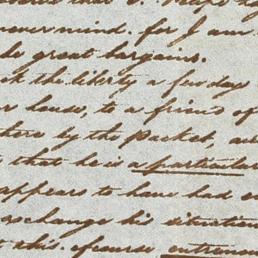 never mind. for I am
great bargains.
the liberty a few days
to a friend of
by the Packet, an
that he is a particular
appears to have had
exchange his situation
this. of course